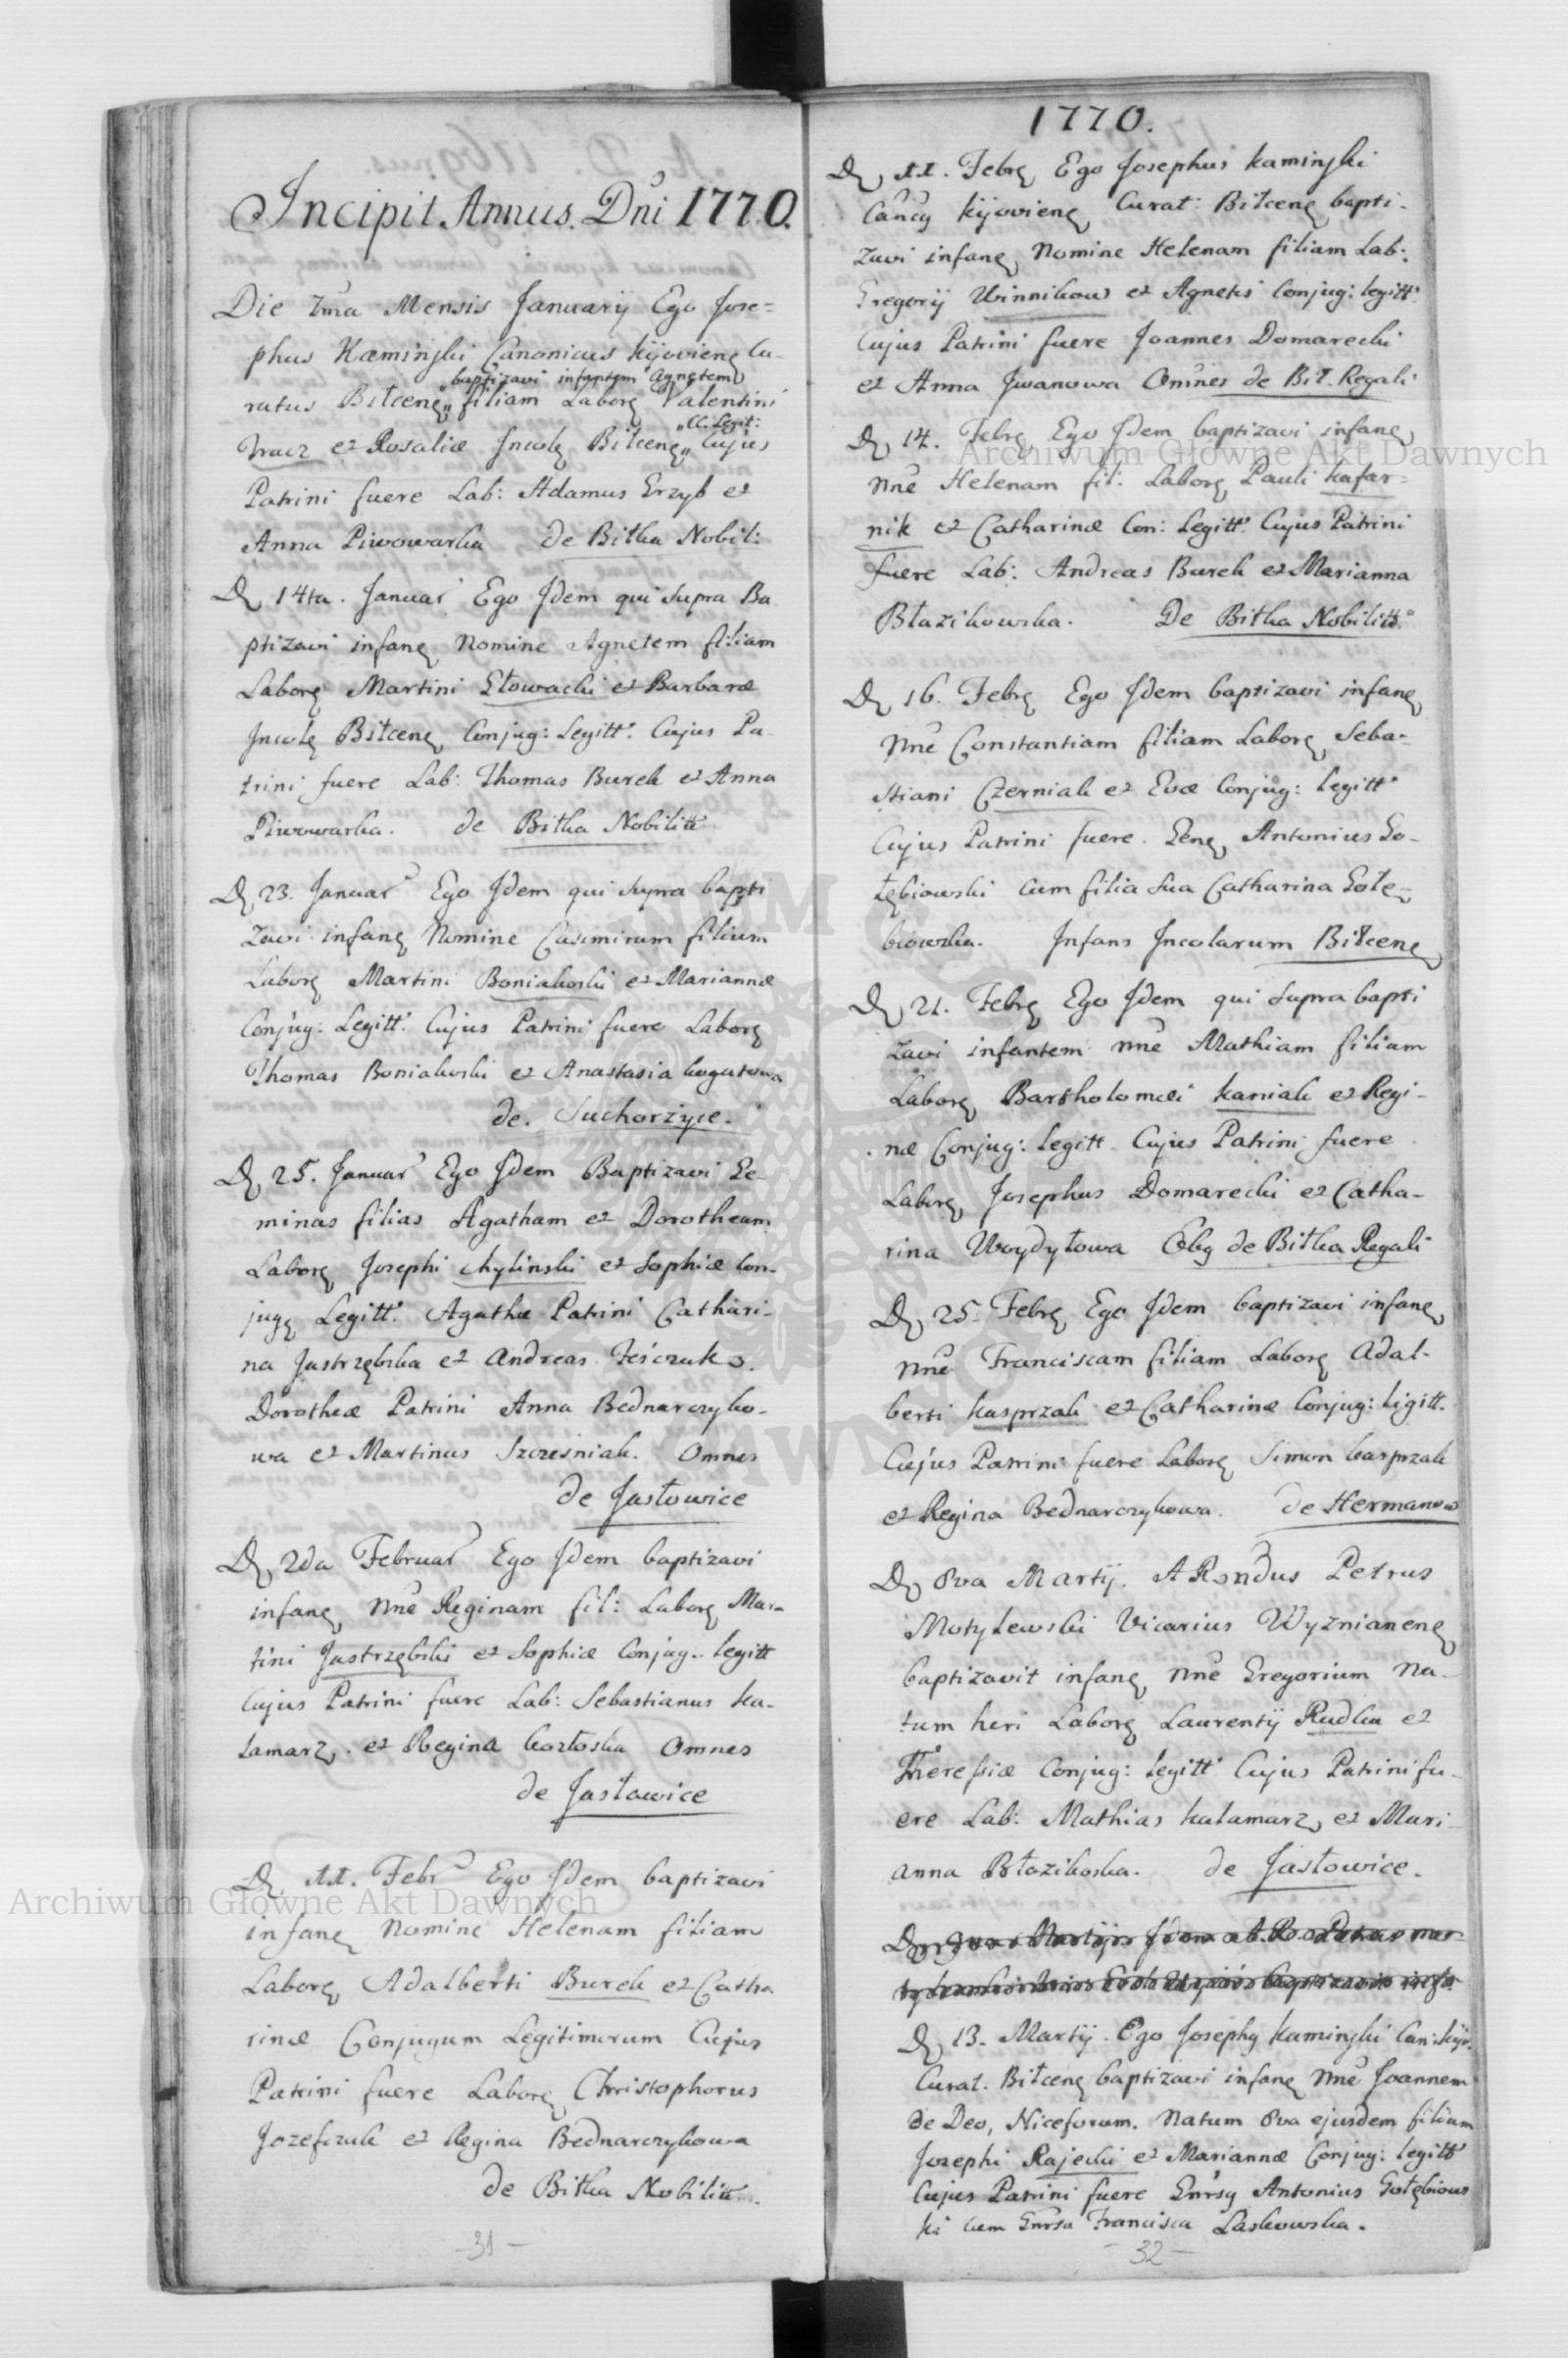 Incipit Annus. Dni 1770.
Die 7ma Mensis Januarij Ego Jose=
phus Kaminski Canonicus Kijoviens Cu-
baptizavi infantem Agnetem
ratus Biłcens,, filiam Labors Valentini
,,CC. Legit:
Tracz et Rosaliæ Incols Biłcens,, Cujus
Patrini fuere Lab: Adamus Grzyb et
Anna Piwowarka de Biłka Nobil:
D 14ta. Januar Ego Idem qui supra Ba
ptizavi infans Nomine Agnetem filiam
Labors Martini Głowacki et Barbaræ
Incols Biłcens Conjug: Legitt. Cujus Pa-
trini fuere Lab: Thomas Burek et Anna
Piwowarka. de Bitka Nobilitt
D 23. Januar Ego Idem qui supra bapti
zavi infans Nomine Casimirum filium
Labors Martini Boniakoski et Mariannæ
Conjug: Legitt. Cujus Patrini fuere Labors
Thomas Boniakoski et Anastasia kogutowa
de. Suchorzyce.
D 25. Januar Ego Idem Baptizavi Ge-
minas filias Agatham et Dorotheam
Labors Josephi chylinski et Sophiæ Con-
jugs Legitt. Agathæ Patrini Cathari-
na Jastrzębska et Andreas
Dorotheæ Patrini Anna Bednarczyko-
wa et Martinus Szczesniak. Omnes
de Jasłowice
D 2da Februar Ego Idem baptizavi
infans Nne Reginam fil: Labors Mar-
tini Jastrzębski et Sophiæ Conjug.. legitt
Cujus Patrini fuere Lab: Sebastianus ka-
lamarz. et Regina kozłoska Omnes
de Jasłowice
D 11. Febr Ego Idem baptizavi
infans Nomine Helenam filiam
Labors Adalberti Burek et Catha
rinæ Conjugum Legitimorum Cujus
Patrini fuere Labors Christophorus
Jozefczuk et Regina Bednarczykowa
de Bitka Nobilitt.
- 31 -
1770.
D 11. Febrs Ego Josephus kaminski
Cancus kijoviens Curat: Biłcens bapti-
zavi infans Nomine Helenam filiam Lab:
Gregorij Winnikow et Agnetis Conjug: legitt:
Cujus Patrini fuere Joannes Domarecki
et Anna Jwanowa Omnes de Bił. Regali
D 14. Febrs Ego Idem baptizavi infans
Nne Helenam fil: Labors Pauli kafar=
nik et Catharinæ Con: Legitt. Cujus Patrini
fuere Lab: Andreas Burek et Marianna
Błazikowska. De Bitka Nobilitt.
D 16. Febrs Ego Idem baptizavi infans
Nne Constantiam filiam Labors Seba-
stiani Czerniak et Evæ Conjug: legitt
Cujus Patrini fuere. Gens Antonius Go-
łębiowski cum filia sua Catharina Gołę-
biowska. Infans Incolarum Biłcens
D 21. Febrs Ego Idem qui supra bapti
zavi infantem nne Mathiam filiam
Labors Bartholomæi kaniak et Regi-
næ Conjug: legitt. Cujus Patrini fuere
Labors Josephus Domarecki et Catha-
rina Woydyłowa de Bitka Regali
D 25. Febrs Ego Idem baptizavi infans
nne Franciscam filiam Labors Adal-
berti kasprzak et Catharinæ Conjug: ligitt.
Cujus Patrini fuere Labors Simon kasprzak
et Regina Bednarczykowa. de Hermanow
D 8va Martij. ARondus Petrus
Motylewski Vicarius Wyznianens
baptizavit infans nne Gregorium Na-
tum heri Labors Laurentij Rudka et
Theresiæ Conjug: legitt Cujus Patrini fu-
ere Lab: Mathias kalamarz, et Mari-
anna Błazikoska. de Jasłowice.
D 13. Martij. Ego Josephs kaminski Can: kijo.
Curat. Biłcens baptizavi infans nne Joannem
de Deo, Niceforum. Natum 8va ejusdem filium
Josephi Rajecki et Mariannæ Conjug: legitt
Cujus Patrini fuere Gnrsus Antonius Gołębiows
ki cum Gnrsa Francisca Laskowska.
- 32 -
Archiwum Główne Akt Dawnych
Archiwum Główne Akt Dawnych